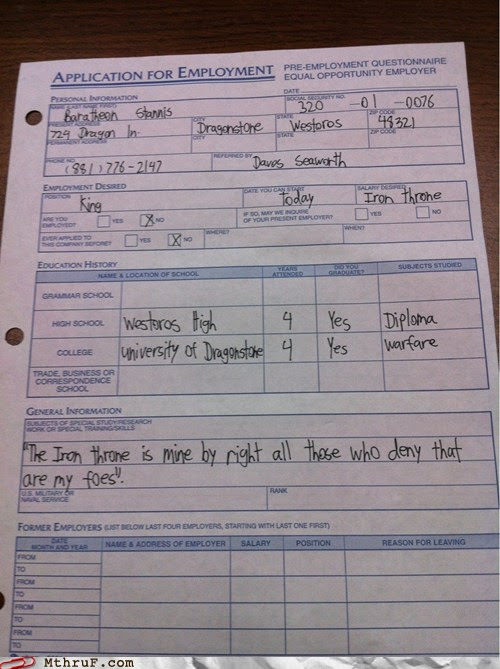 APPLICATION FOR EMPLOYMENT
PRE-EMPLOYMENT QUESTIONNAIRE
EQUAL OPPORTUNITY EMPLOYER
PERSONAL INFORMATION
DATE
NAME (LAST NAME FIRST)
Baratheon Stannis
SOCIAL SECURITY NO.
320 -01 -0076
PRESENT ADDRESS
729 Dragon ln.
CITY
Dragonstone
STATE
Westoros
ZIP CODE
48321
PERMANENT ADDRESS
CITY
STATE
ZIP CODE
PHONE NO.
(881)776-2147
REFERRED BY
Davos Seaworth
EMPLOYMENT DESIRED
POSITION
King
DATE YOU CAN START
Today
SALARY DESIRED
Iron throne
ARE YOU EMPLOYED? YES X NO
IF SO, MAY WE INQUIRE OF YOUR PRESENT EMPLOYER? YES NO
EVER APPLIED TO THIS COMPANY BEFORE? YES X NO
WHERE?
WHEN?
EDUCATION HISTORY
NAME & LOCATION OF SCHOOL
YEARS ATTENDED
DID YOU GRADUATE?
SUBJECTS STUDIED
GRAMMAR SCHOOL
HIGH SCHOOL Westoros High 4 Yes Diploma
COLLEGE university of Dragonstone 4 Yes warfare
TRADE, BUSINESS OR CORRESPONDENCE SCHOOL
GENERAL INFORMATION
SUBJECTS OF SPECIAL STUDY/RESEARCH
WORK OR SPECIAL TRAINING/SKILLS
"The Iron throne is mine by right all those who deny that
are my foes".
U.S. MILITARY OR NAVAL SERVICE
RANK
FORMER EMPLOYERS (LIST BELOW LAST FOUR EMPLOYERS, STARTING WITH LAST ONE FIRST)
DATE MONTH AND YEAR
NAME & ADDRESS OF EMPLOYER
SALARY
POSITION
REASON FOR LEAVING
FROM
TO
FROM
TO
FROM
TO
FROM
TO
MThruF.com